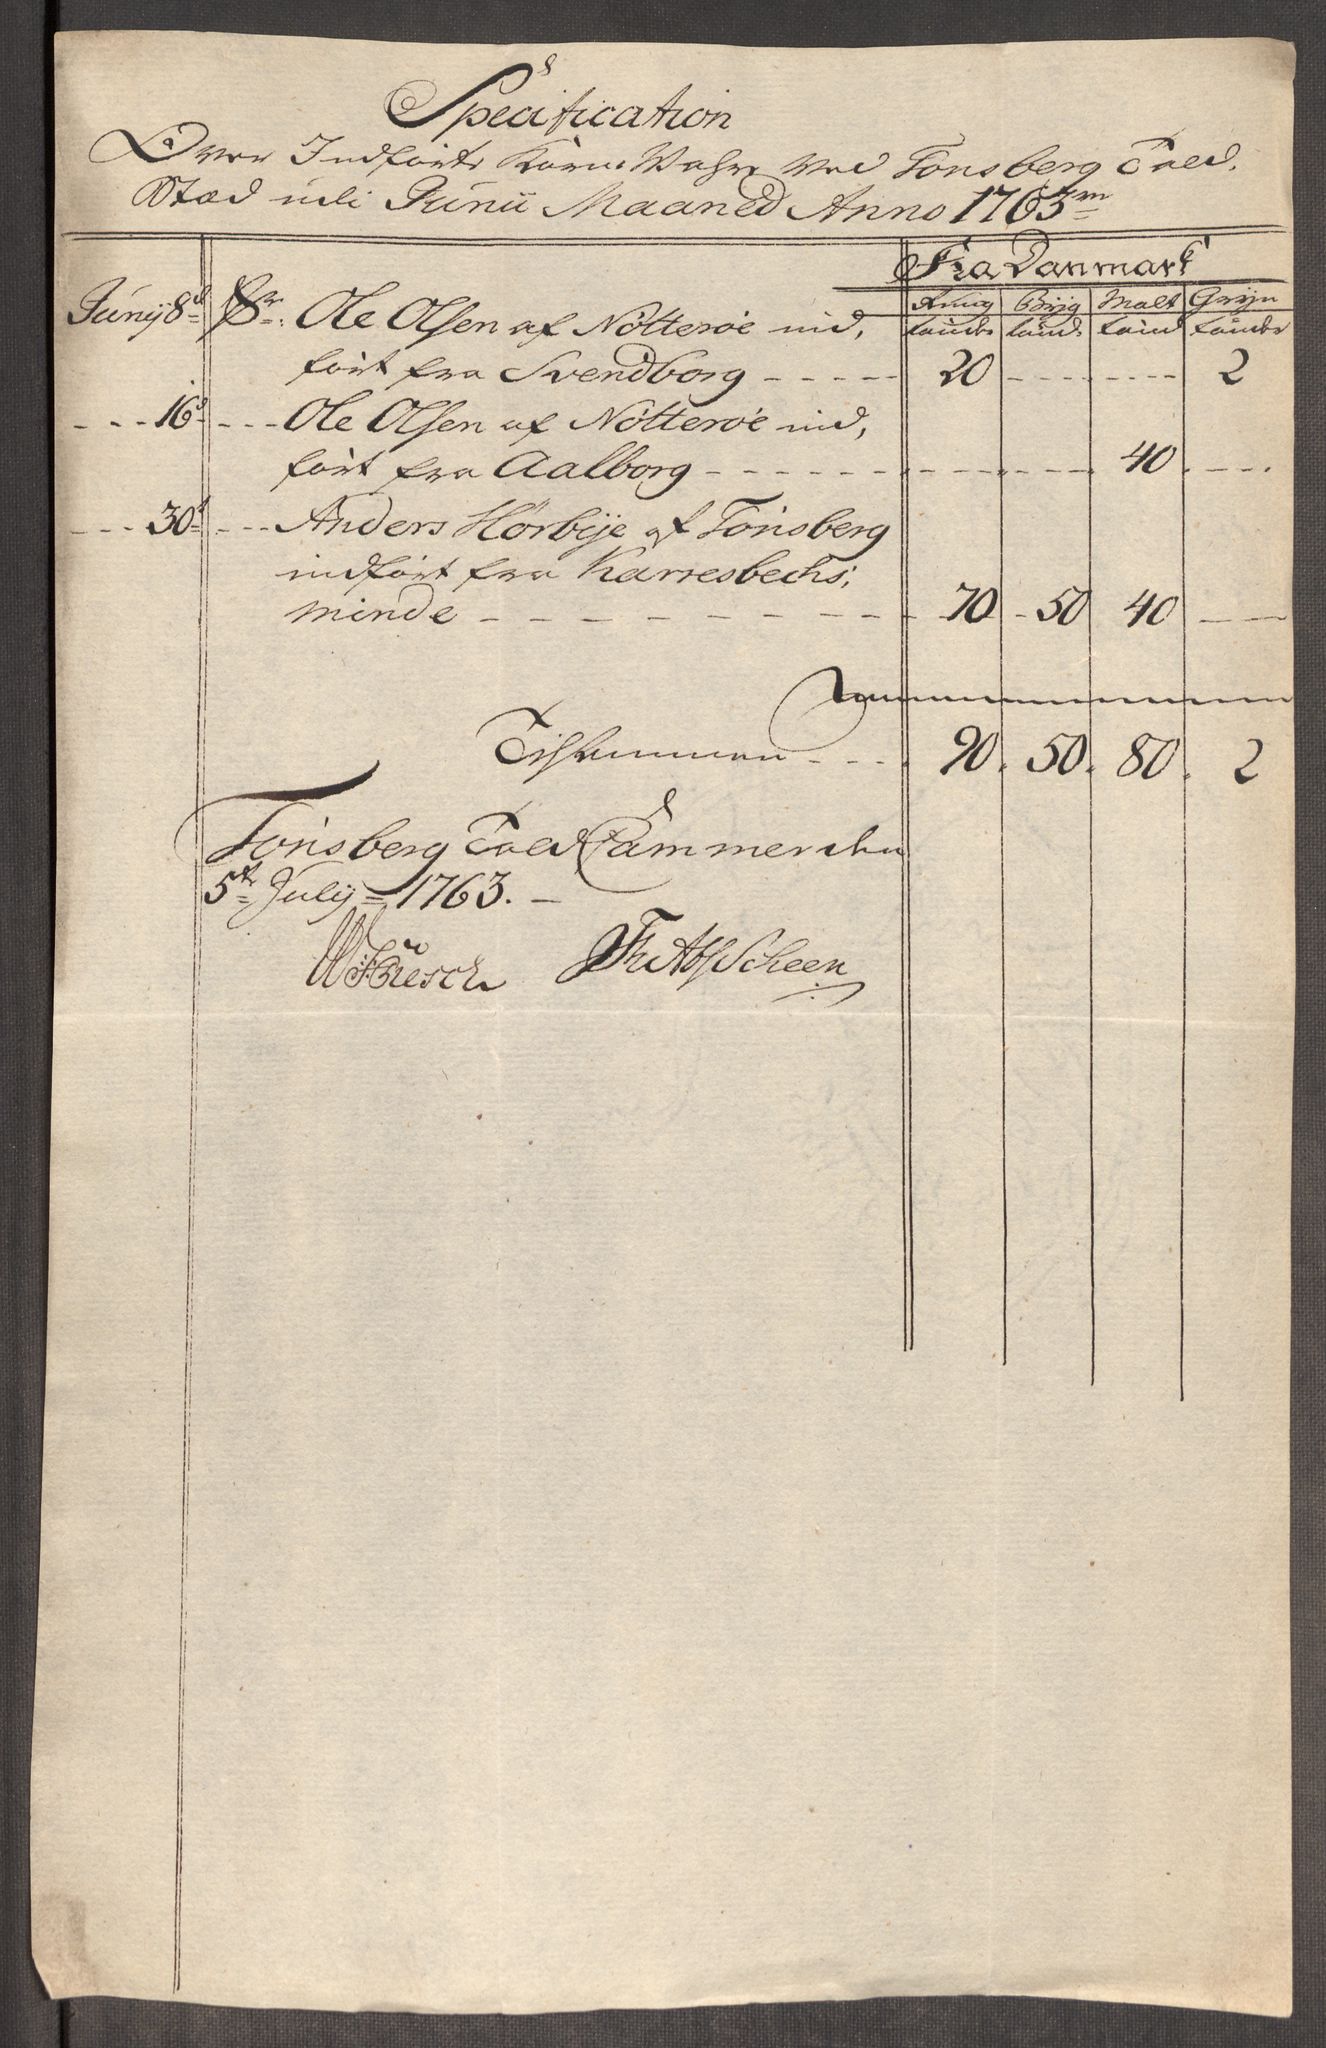 Specification
Over Indførte Korn-Vahre ved Tonsberg Told-
Stæd udi Junii Maaned Anno 1763
Fra Danmark
Rug Byg Malt Gryn
tønder tønd: tønd tønder
Junij 8d Sr: Ole Olsen af Nötteröe ind,
ført fra Svendborg ----- 20 ------- 2
--- 16d --- Ole Olsen af Nötteröe ind,
ført fra Aalborg ------- 40 ---
--- 30d --- Anders Hörbye af Tönsberg
indført fra Karresbechs,
minde --------- 70 - 50 40 ---
Tilsammen ---- 90. 50. 80. 2
Tönsberg Told Cammer den
5te July = 1763. -